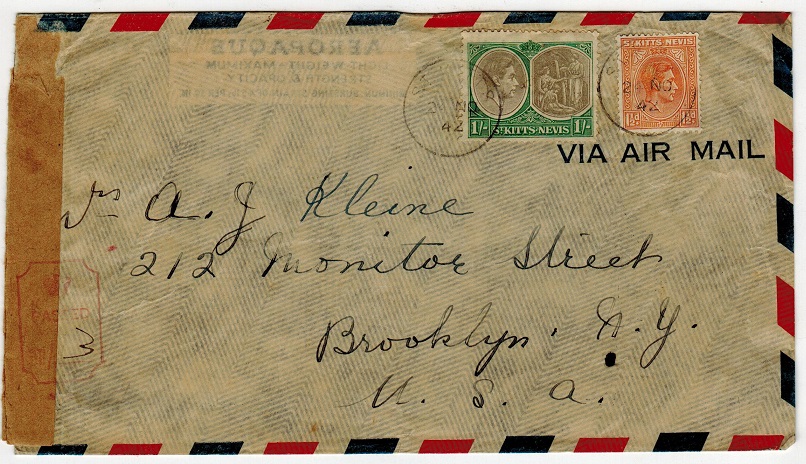 AEROPAQUE
LIGHT WEIGHT MAXIMUM
STRENGTH & OPACITY
1/- ST KITTS-NEVIS 1/-
ST KITTS-NEVIS
1½d 1½d
VIA AIR MAIL
Mrs A. J Kleine
212 Monitor Street
Brooklyn, N.Y.
U. S. A.
PASSED
3